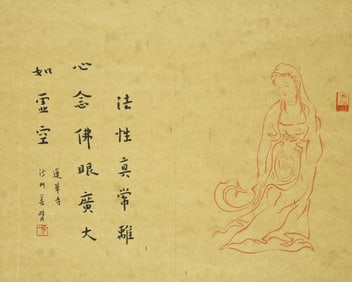 法性真常離
心念佛眼廣大
如虛空
蓮華寺